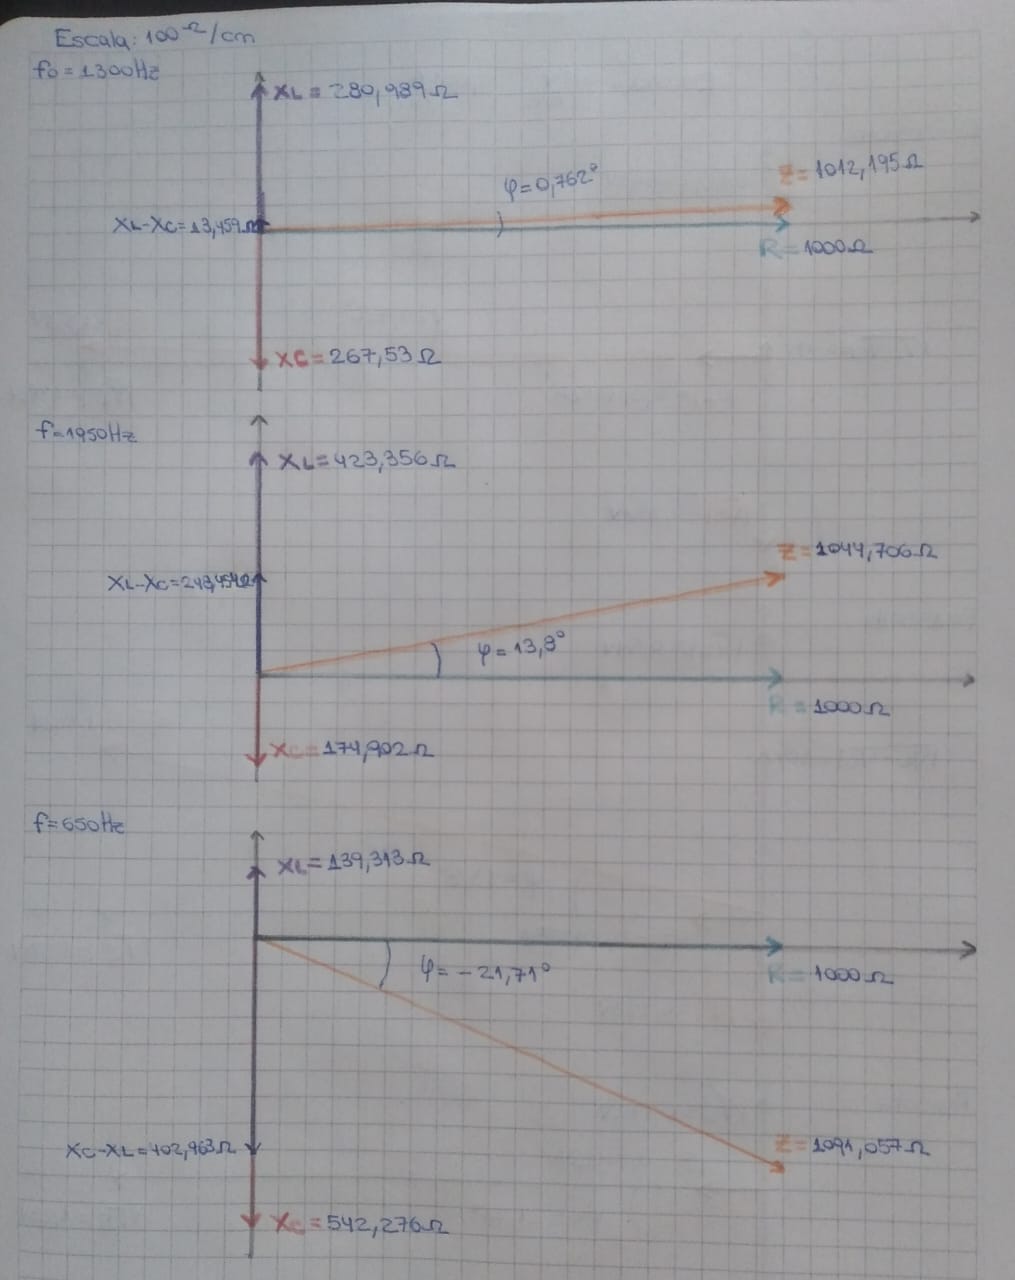 Escala: 100Ω/cm
f₀=1300Hz
XL=280,989Ω
φ=0,762°
Z=1012,195Ω
XL-XC=13,459Ω
R=1000Ω
XC=267,53Ω
f=1950Hz
XL=423,356Ω
Z=1044,706Ω
XL-XC=243,454Ω
φ=13,8°
R=1000Ω
XC=174,902Ω
f=650Hz
XL=139,313Ω
φ=-21,71°
R=1000Ω
XC-XL=402,963Ω
Z=1091,057Ω
XC=542,276Ω